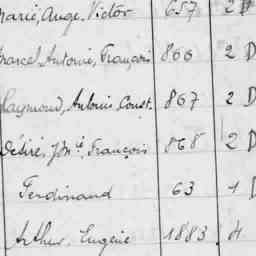 Marie, Ange, Victor 657 2 D
Marcel, Antoine, François 866 2 D
Raymond, Antonin Const. 867 2 D
Désiré, Jh, François 868 2 D
Ferdinand 63 1 D
Arthur, Eugène 1883. 4